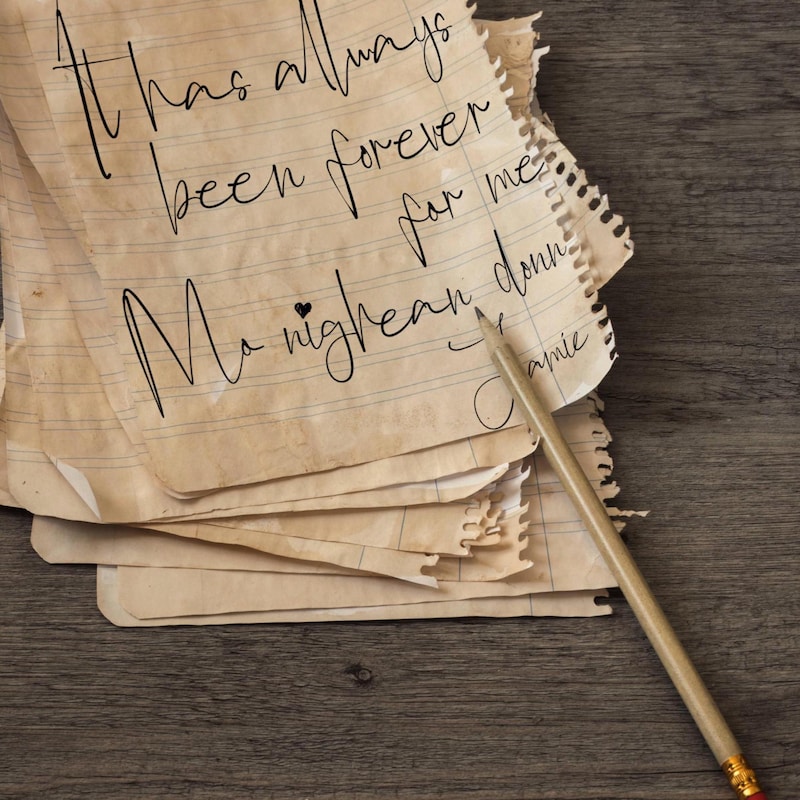 It has always
been forever
for me
Mo nighean donn
Jamie